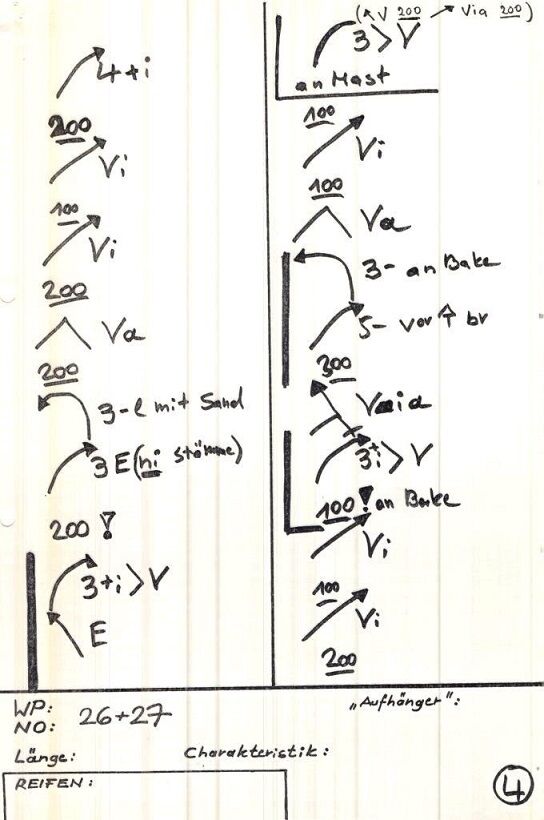 4+i
200
Vi
100
Vi
200
Va
200
3-l mit Sand
3 E (ni stömme)
200 !
3+i > V
E
(V 200 Via 200)
3 > V
an Mast
100
Vi
100
Va
3- an Bake
5- vor br
300
Vaia
3+i > V
100 ! an Bake
Vi
100
Vi
200
WP:
NO: 26+27
"Aufhänger":
Länge: Charakteristik:
REIFEN:
4